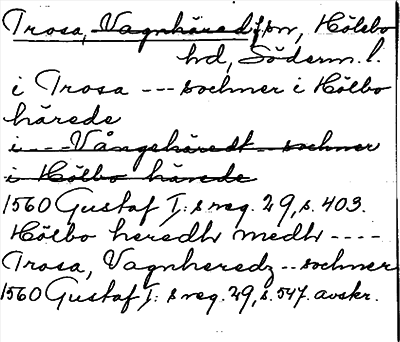 Trosa, Vagnhärad f, sn, Hölebo
hd, Söderm. l.
i Trosa --- sochner i Hölbo
härede
i --- Vångehäredt sochner
i Hölbo härede
1560 Gustaf I:s reg. 29, s. 403.
Hölbo heredh medh ----
Trosa, Vagnheredz -- sochner
1560 Gustaf I:s reg. 29, s. 547. avskr.